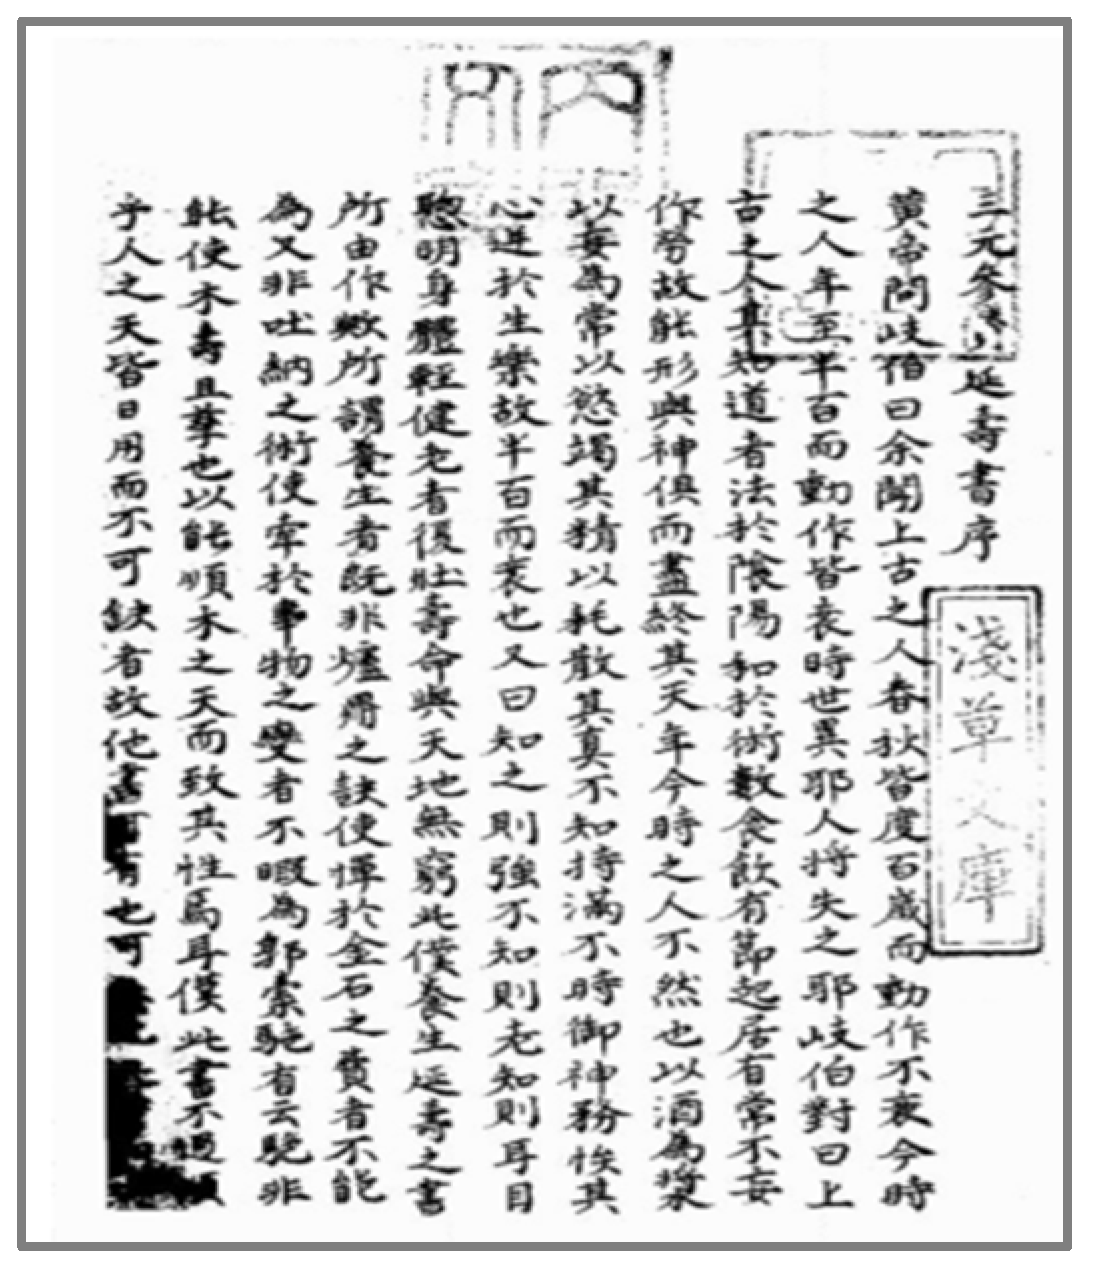 三元參賛延壽書序
黃帝問岐伯曰余聞上古之人春秋皆度百歲而動作不衰今時
之人年至半百而動作皆衰時世異耶人將失之耶岐伯對曰上
古之人其知道者法於陰陽和於術數食飲有節起居有常不妄
作勞故能形與神俱而盡終其天年今時之人不然也以酒為漿
以妄為常以慾竭其精以耗散其真不知持滿不時御神務快其
心逆於生樂故半百而衰也又曰知之則強不知則老知則耳目
聰明身體輕健老者復壯壽命與天地無窮此僕養生延壽之書
所由作歟所謂養生者既非爐鼎之訣使憚於金石之費者不能
為又非吐納之術使牽於事物之變者不暇為郭橐駝有云駝非
能使木壽且孳也以能順木之天而致其性焉耳僕此書不過順
乎人之天皆日用而不可缺者故他書可有也可
淺草文庫